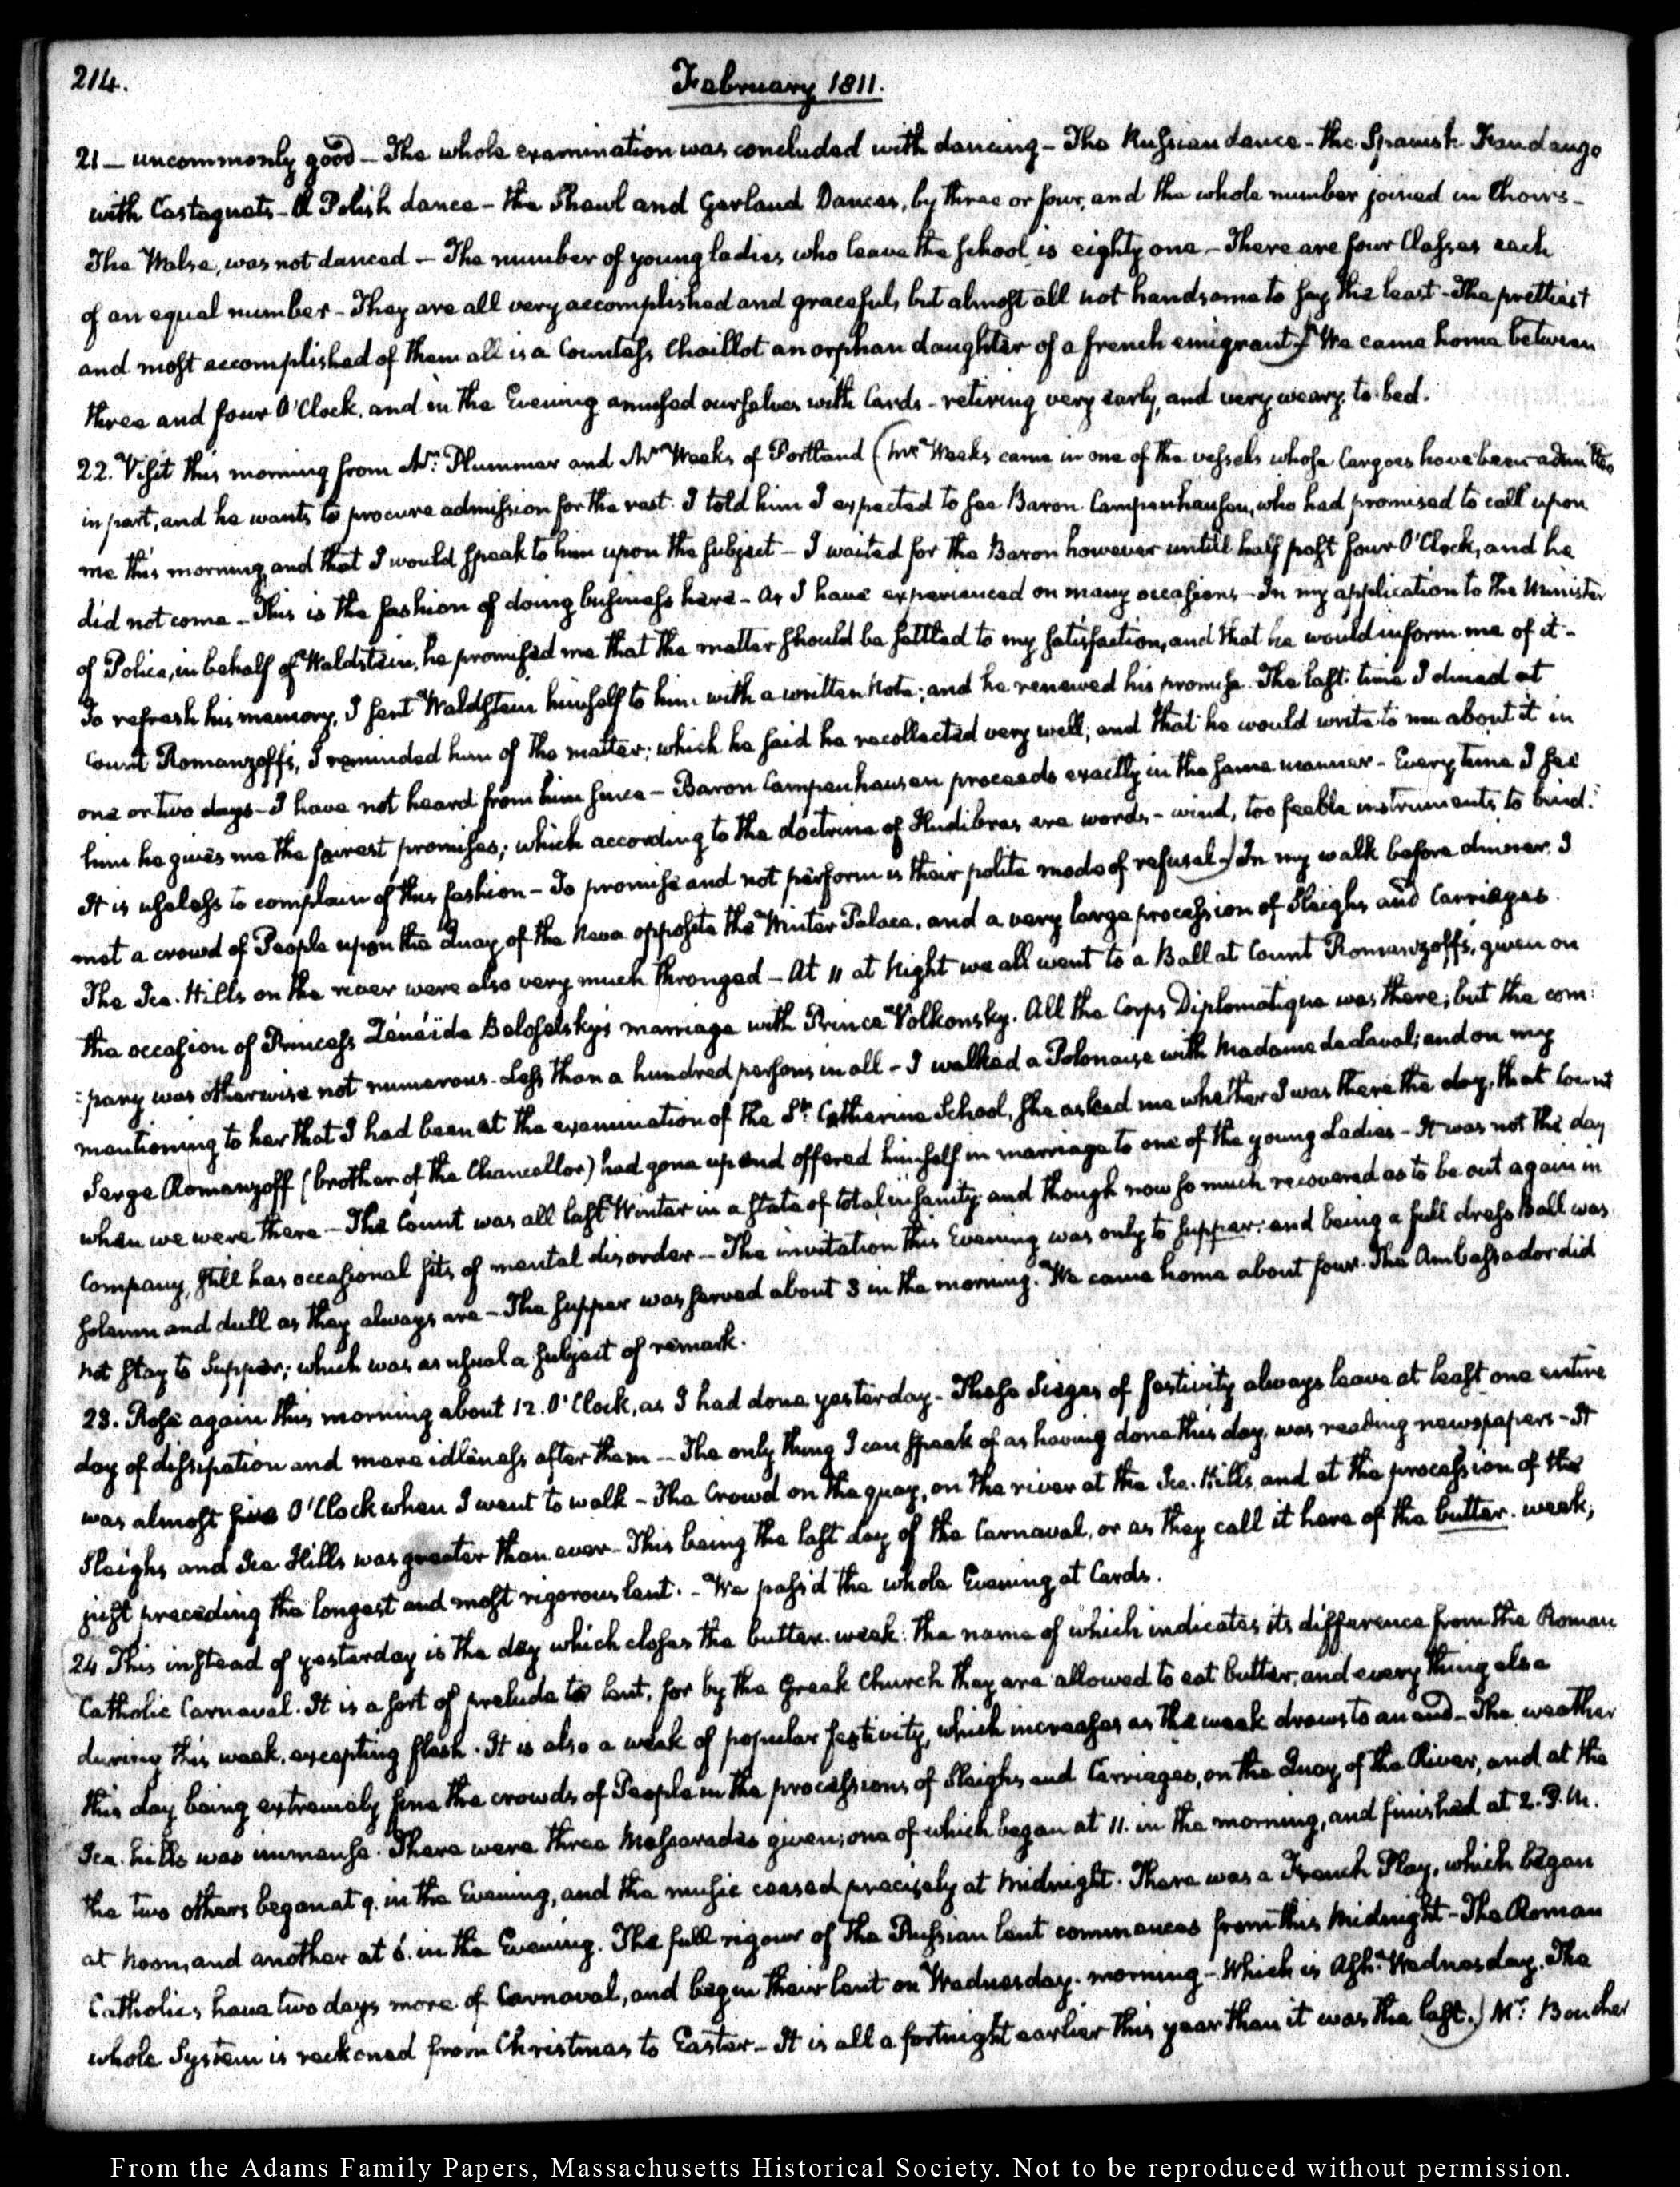 214.
February 1811.
21 — uncommonly good — The whole examination was concluded with dancing — The Russian dance — the Spanish Fandango
with Castagnets — A Polish dance — the Shawl and Garland Dances, by three or four, and the whole number joined in Choirs —
The Walse, was not danced — The number of young ladies who leave the school is eighty one — There are four Classes each
of an equal number — They are all very accomplished and graceful, but almost all not handsome to say the least — The prettiest
and most accomplished of them all is a Countess Chaillot an orphan daughter of a french emigrant.) We came home between
three and four O'Clock, and in the Evening amused ourselves with Cards — retiring very early, and very weary, to bed.
22. Visit this morning from Mr: Plummer and Mr Weeks of Portland (Mr Weeks came in one of the vessels whose Cargoes have been admitted
in part, and he wants to procure admission for the rest. I told him I expected to see Baron Campenhausen, who had promised to call upon
me this morning, and that I would speak to him upon the subject — I waited for the Baron however untill half past four O'Clock, and he
did not come — This is the fashion of doing business here — As I have experienced on many occasions — In my application to the Minister
of Police, in behalf of Waldstein, he promised me that the matter should be settled to my satisfaction, and that he would inform me of it —
To refresh his memory, I sent Waldstein himself to him with a written Note; and he renewed his promise. The last time I dined at
Count Romanzoff's, I reminded him of the matter; which he said he recollected very well; and that he would write to me about it in
one or two days — I have not heard from him since — Baron Campenhausen proceeds exactly in the same manner — Every time I see
him he gives me the fairest promises; which according to the doctrine of Hudibras are words — wind, too feeble instruments to bind.
It is useless to complain of this fashion — To promise and not perform is their polite mode of refusal.) In my walk before dinner I
met a crowd of People upon the Quay of the Neva opposite the Winter Palace, and a very large procession of Sleighs and Carriages.
The Ice-Hills on the river were also very much thronged — At 11 at Night we all went to a Ball at Count Romanzoff's, given on
the occasion of Princess Zénéïde Beloselsky's marriage with Prince Volkonsky. All the Corps Diplomatique was there; but the com:
:pany was otherwise not numerous — Less than a hundred persons in all — I walked a Polonaise with Madame de Laval; and on my
mentioning to her that I had been at the examination of the St. Catherine School, she asked me whether I was there the day, that Count
Serge Romanzoff (brother of the Chancellor) had gone up and offered himself in marriage to one of the young Ladies — It was not the day
when we were there — The Count was all last Winter in a state of total insanity and though now so much recovered as to be out again in
Company, still has occasional fits of mental disorder — The invitation this Evening was only to supper; and being a full dress Ball was
solemn and dull as they always are — The supper was served about 3 in the morning. We came home about four. The Ambassador did
not stay to Supper; which was as usual a subject of remark.
23. Rose again this morning about 12. O'Clock, as I had done yesterday — These Sieges of festivity always leave at least one entire
day of dissipation and mere idleness after them — The only thing I can speak of as having done this day, was reading newspapers — It
was almost five O'Clock when I went to walk — The Crowd on the quay, on the river at the Ice-Hills and at the procession of the
Sleighs and Ice Hills was greater than ever — This being the last day of the Carnaval, or as they call it here of the butter-week,
just preceding the longest and most rigorous lent. — We pass'd the whole Evening at Cards.
24. This instead of yesterday is the day which closes the butter-week: the name of which indicates its difference from the Roman
Catholic Carnaval. It is a sort of prelude to lent, for by the Greek Church they are allowed to eat butter, and every thing else
during this week, excepting flesh. It is also a week of popular festivity, which increases as the week draws to an end — The weather
this day being extremely fine the crowds of People in the processions of Sleighs and Carriages, on the Quay of the River, and at the
Ice-hills was immense. There were three Mascarades given; one of which began at 11. in the morning, and finished at 2. P.M.
the two others began at 9. in the Evening, and the music ceased precisely at Midnight. There was a French Play, which began
at Noon, and another at 6. in the Evening. The full rigour of the Russian lent commences from this Midnight — The Roman
Catholics have two days more of Carnaval, and begin their lent on Wednesday-morning — Which is Ash-Wednesday. The
whole System is reckoned from Christmas to Easter — It is all a fortnight earlier this year than it was the last.) Mr: Boucher
From the Adams Family Papers, Massachusetts Historical Society. Not to be reproduced without permission.